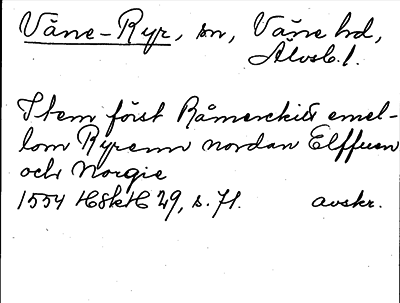 Väne-Ryr, sn, Väne hd,
Älvsb. l.
Item först Råmerckiit emel-
lom Ryrenn nordan Elffuen
och Norgie
1554 HSkH 29, s. 71. avskr.